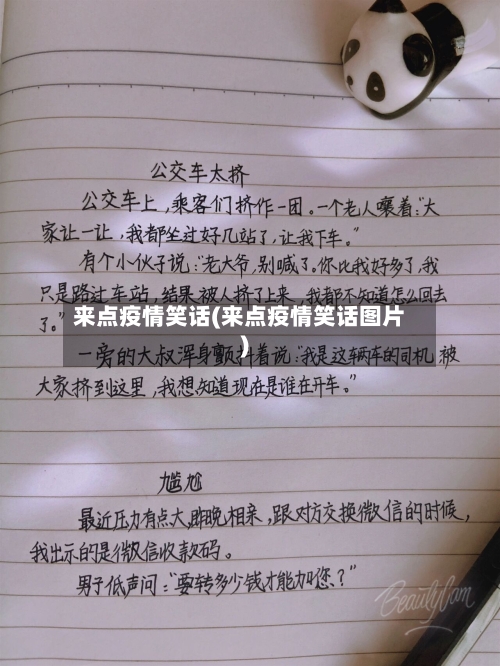 公交车太挤
公交车上，乘客们挤作一团。一个老人嚷着：“大
家让一让，我都坐过好几站了，让我下车。”
有个小伙子说：“老大爷，别喊了。你比我好多了，我
只是路过车站，结果被人挤了上来，我都不知道怎么回去
了。”
来点疫情笑话(来点疫情笑话图片
)
一旁的大叔浑身颤抖着说：“我是这辆车的司机，被
大家挤到这里，我想知道现在是谁在开车。”
尴尬
最近压力有点大，昨晚相亲，跟对方交换微信的时候，
我出示的是微信收款码。
男子低声问：“要转多少钱才能加您？”
BeautyCam